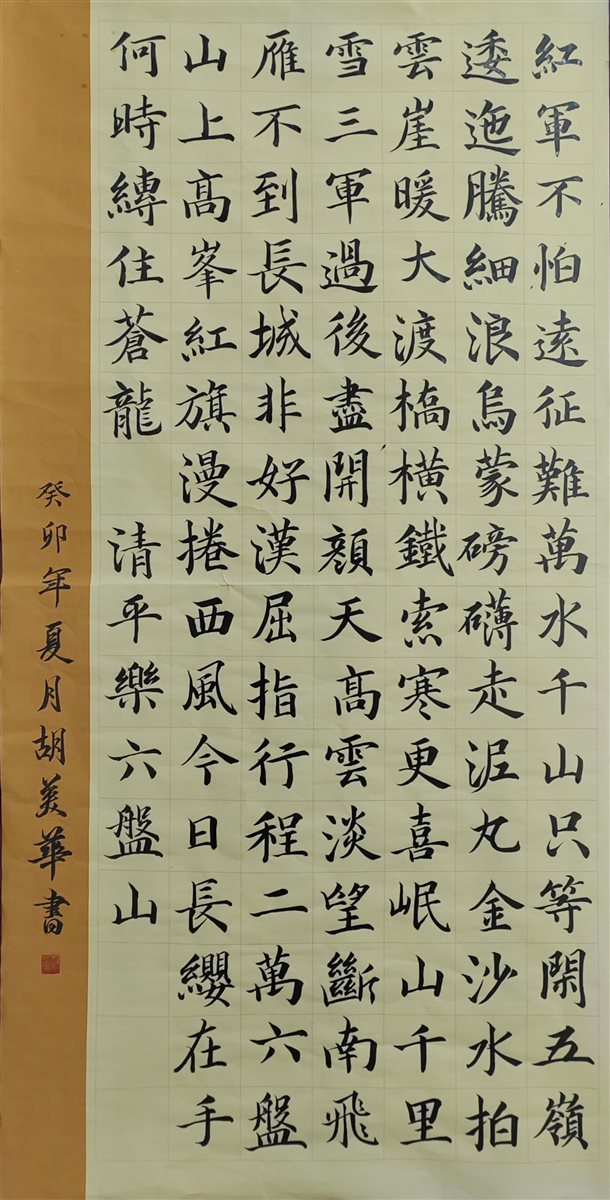 紅軍不怕遠征難萬水千山只等閑五嶺
逶迤騰細浪烏蒙磅礴走泥丸金沙水拍
雲崖暖大渡橋橫鐵索寒更喜岷山千里
雪三軍過後盡開顏天髙雲淡望斷南飛
雁不到長城非好漢屈指行程二萬六盤
山上髙峯紅旗漫捲西風今日長纓在手
何時縛住蒼龍 清平樂六盤山
癸卯年夏月胡美華書